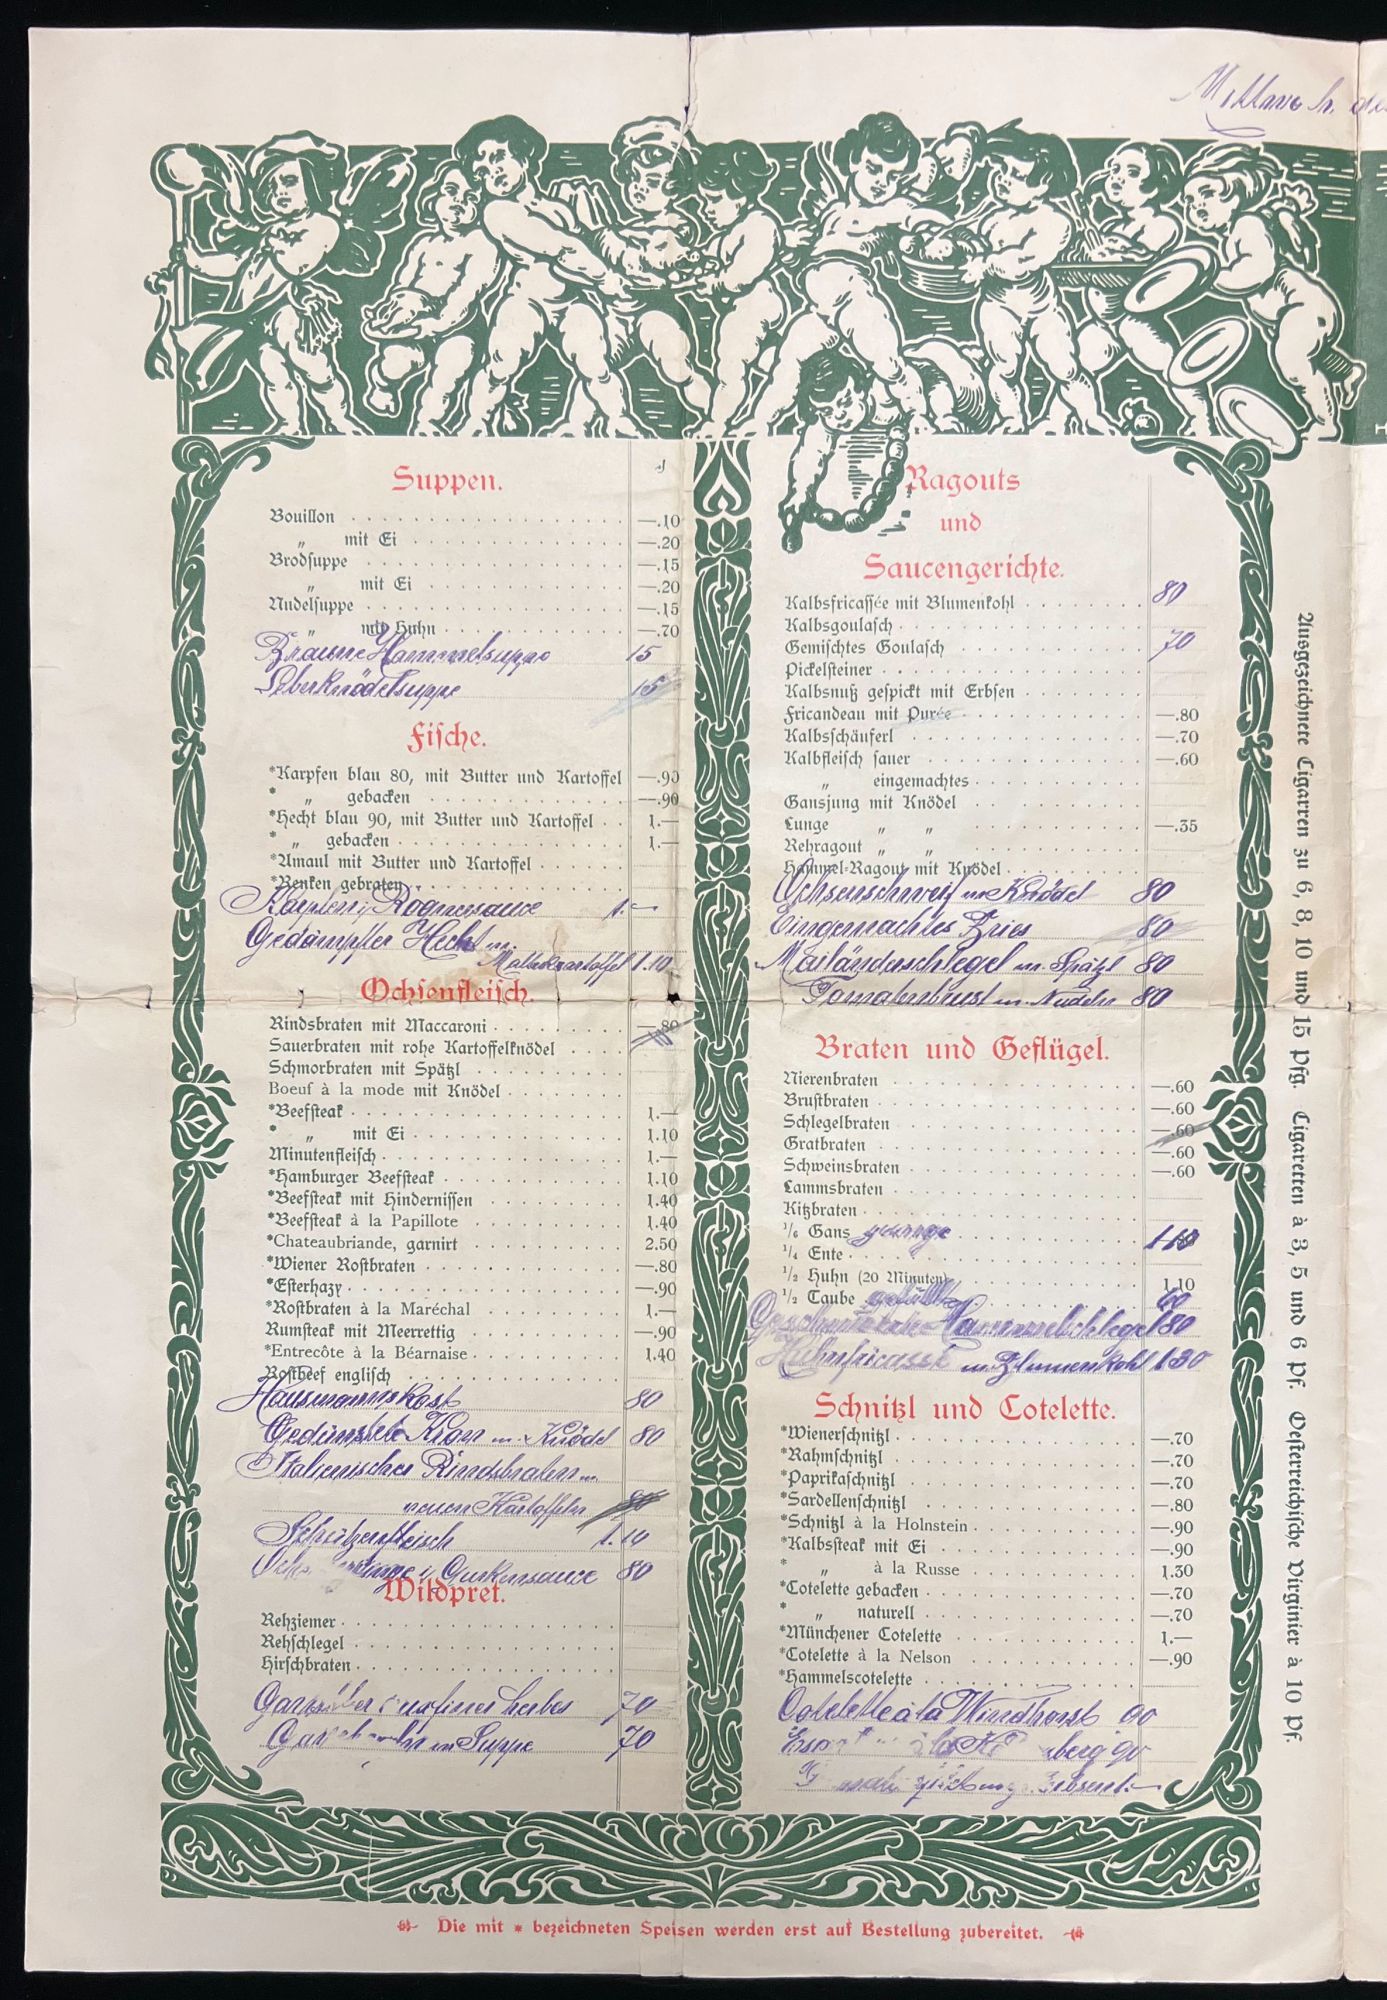 Mittwoch, de
Suppen.
Bouillon —.10
„ mit Ei —.20
Brodsuppe —.15
„ mit Ei —.20
Nudelsuppe —.15
„ mit Huhn —.70
Braune Hammelsuppe 15
Leberknödelsuppe 15
Fische.
*Karpfen blau 80, mit Butter und Kartoffel —.90
* „ gebacken —.90
*Hecht blau 90, mit Butter und Kartoffel 1.—
* „ gebacken 1.—
*Amaul mit Butter und Kartoffel
*Renken gebraten
Karpfen i. 1.—
Gedämpfter Hecht m.
1.10
Ochsenfleisch.
Rindsbraten mit Maccaroni —.80
Sauerbraten mit rohe Kartoffelknödel
Schmorbraten mit Spätzl
Boeuf à la mode mit Knödel
*Beefsteak 1.—
* „ mit Ei 1.10
Minutenfleisch 1.—
*Hamburger Beefsteak 1.10
*Beefsteak mit Hindernissen 1.40
*Beefsteak à la Papillote 1.40
*Chateaubriande, garnirt 2.50
*Wiener Rostbraten —.80
*Esterhazy —.90
*Rostbraten à la Maréchal 1.—
Rumsteak mit Meerrettig —.90
*Entrecôte à la Béarnaise 1.40
Rostbeef englisch
Hausmannskost 80
Gedünstete m. Knödel 80
Italienischer Rindsbraten m.
neuen Kartoffeln 80
Schützenfleisch 1.10
i. Gurkensauce 80
Wildpret.
Rehziemer
Rehschlegel
Hirschbraten
herbes 70
in Suppe 70
Ragouts
und
Saucengerichte.
Kalbsfricassée mit Blumenkohl 80
Kalbsgoulasch
Gemischtes Goulasch 70
Pickelsteiner
Kalbsnuß gespickt mit Erbsen
Fricandeau mit Purée —.80
Kalbschäuferl —.70
Kalbfleisch sauer —.60
„ eingemachtes
Gansjung mit Knödel
Lunge „ „ —.35
Rehragout „ „
Hammel-Ragout mit Knödel
Ochsenschweif m. Knödel 80
Eingemachtes Bries 80
Mailänderschlegel m. Spätzl 80
Tomatenbrust m. Nudeln 80
Braten und Geflügel.
Nierenbraten —.60
Brustbraten —.60
Schlegelbraten —.60
Gratbraten —.60
Schweinsbraten —.60
Lammsbraten
Kitzbraten
1/6 Gans junge 1.10
1/4 Ente
1/2 Huhn (20 Minuten) 1.10
1/2 Taube gefüllte 60
Hammelschlegel 80
Huhnfricassé m. Blumenkohl 1.30
Schnitzl und Cotelette.
*Wienerschnitzl —.70
*Rahmschnitzl —.70
*Paprikaschnitzl —.70
*Sardellenschnitzl —.80
*Schnitzl à la Holnstein —.90
*Kalbsteak mit Ei —.90
* „ à la Russe 1.30
*Cotelette gebacken —.70
* „ naturell —.70
*Münchener Cotelette 1.—
*Cotelette à la Nelson —.90
*Hammelscotelette
Cotelette à la Windhorst 90
90
Ausgezeichnete Cigarren zu 6, 8, 10 und 15 Pfg. Cigaretten à 3, 5 und 6 Pf. Oesterreichische Virginier à 10 Pf.
Die mit * bezeichneten Speisen werden erst auf Bestellung zubereitet.